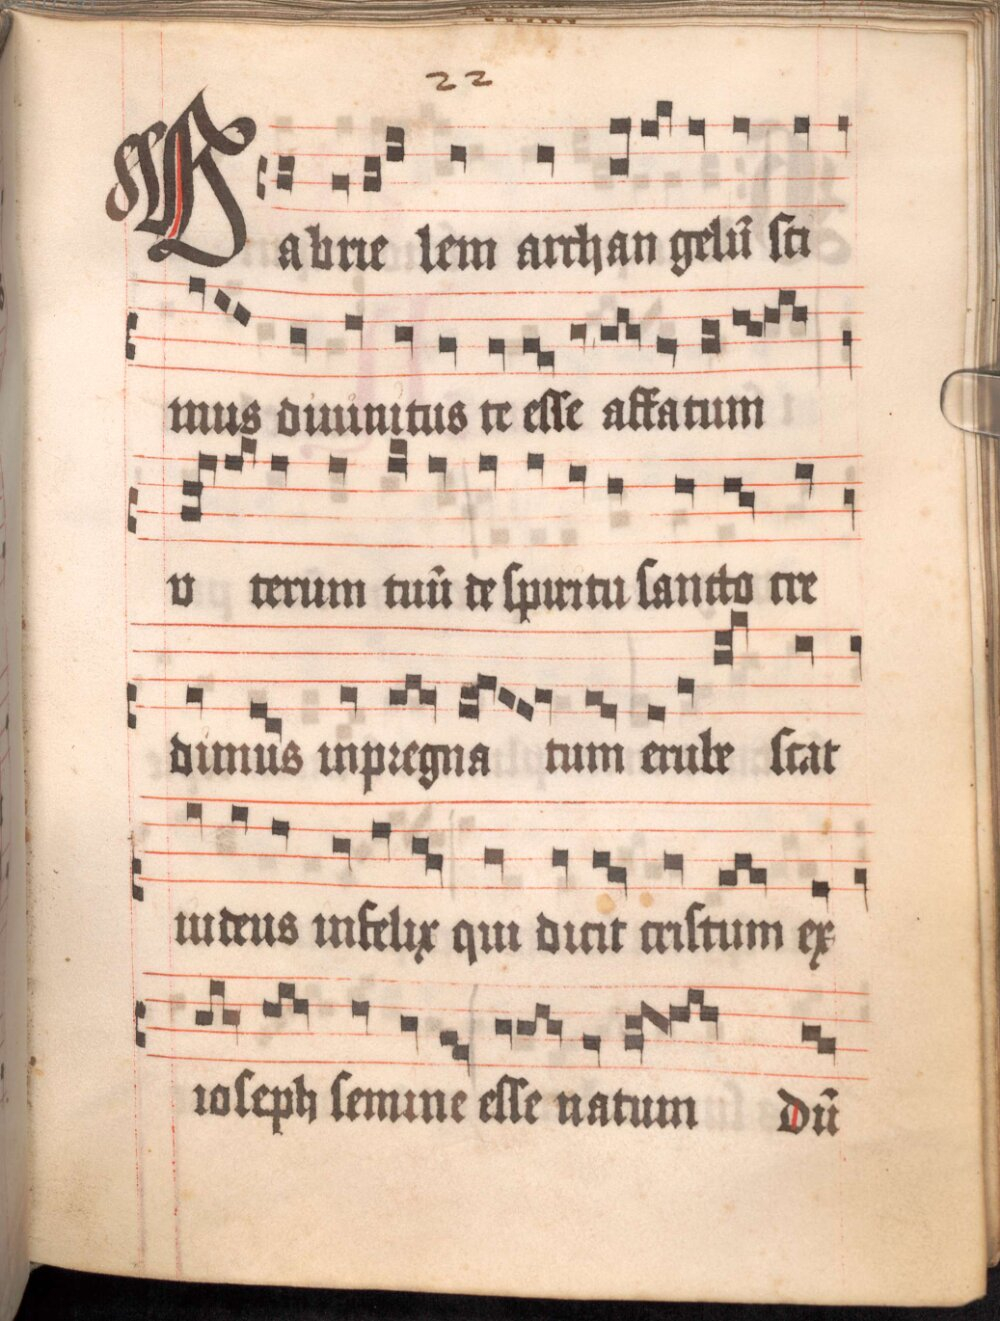 22
Gabrie lem archan gelū sci
mus diuinitus te esse affatum
v terum tuū de spiritu sancto cre
dimus inpregna tum erube scat
iudeus infelix qui dicit cristum ex
ioseph semine esse natum Dū